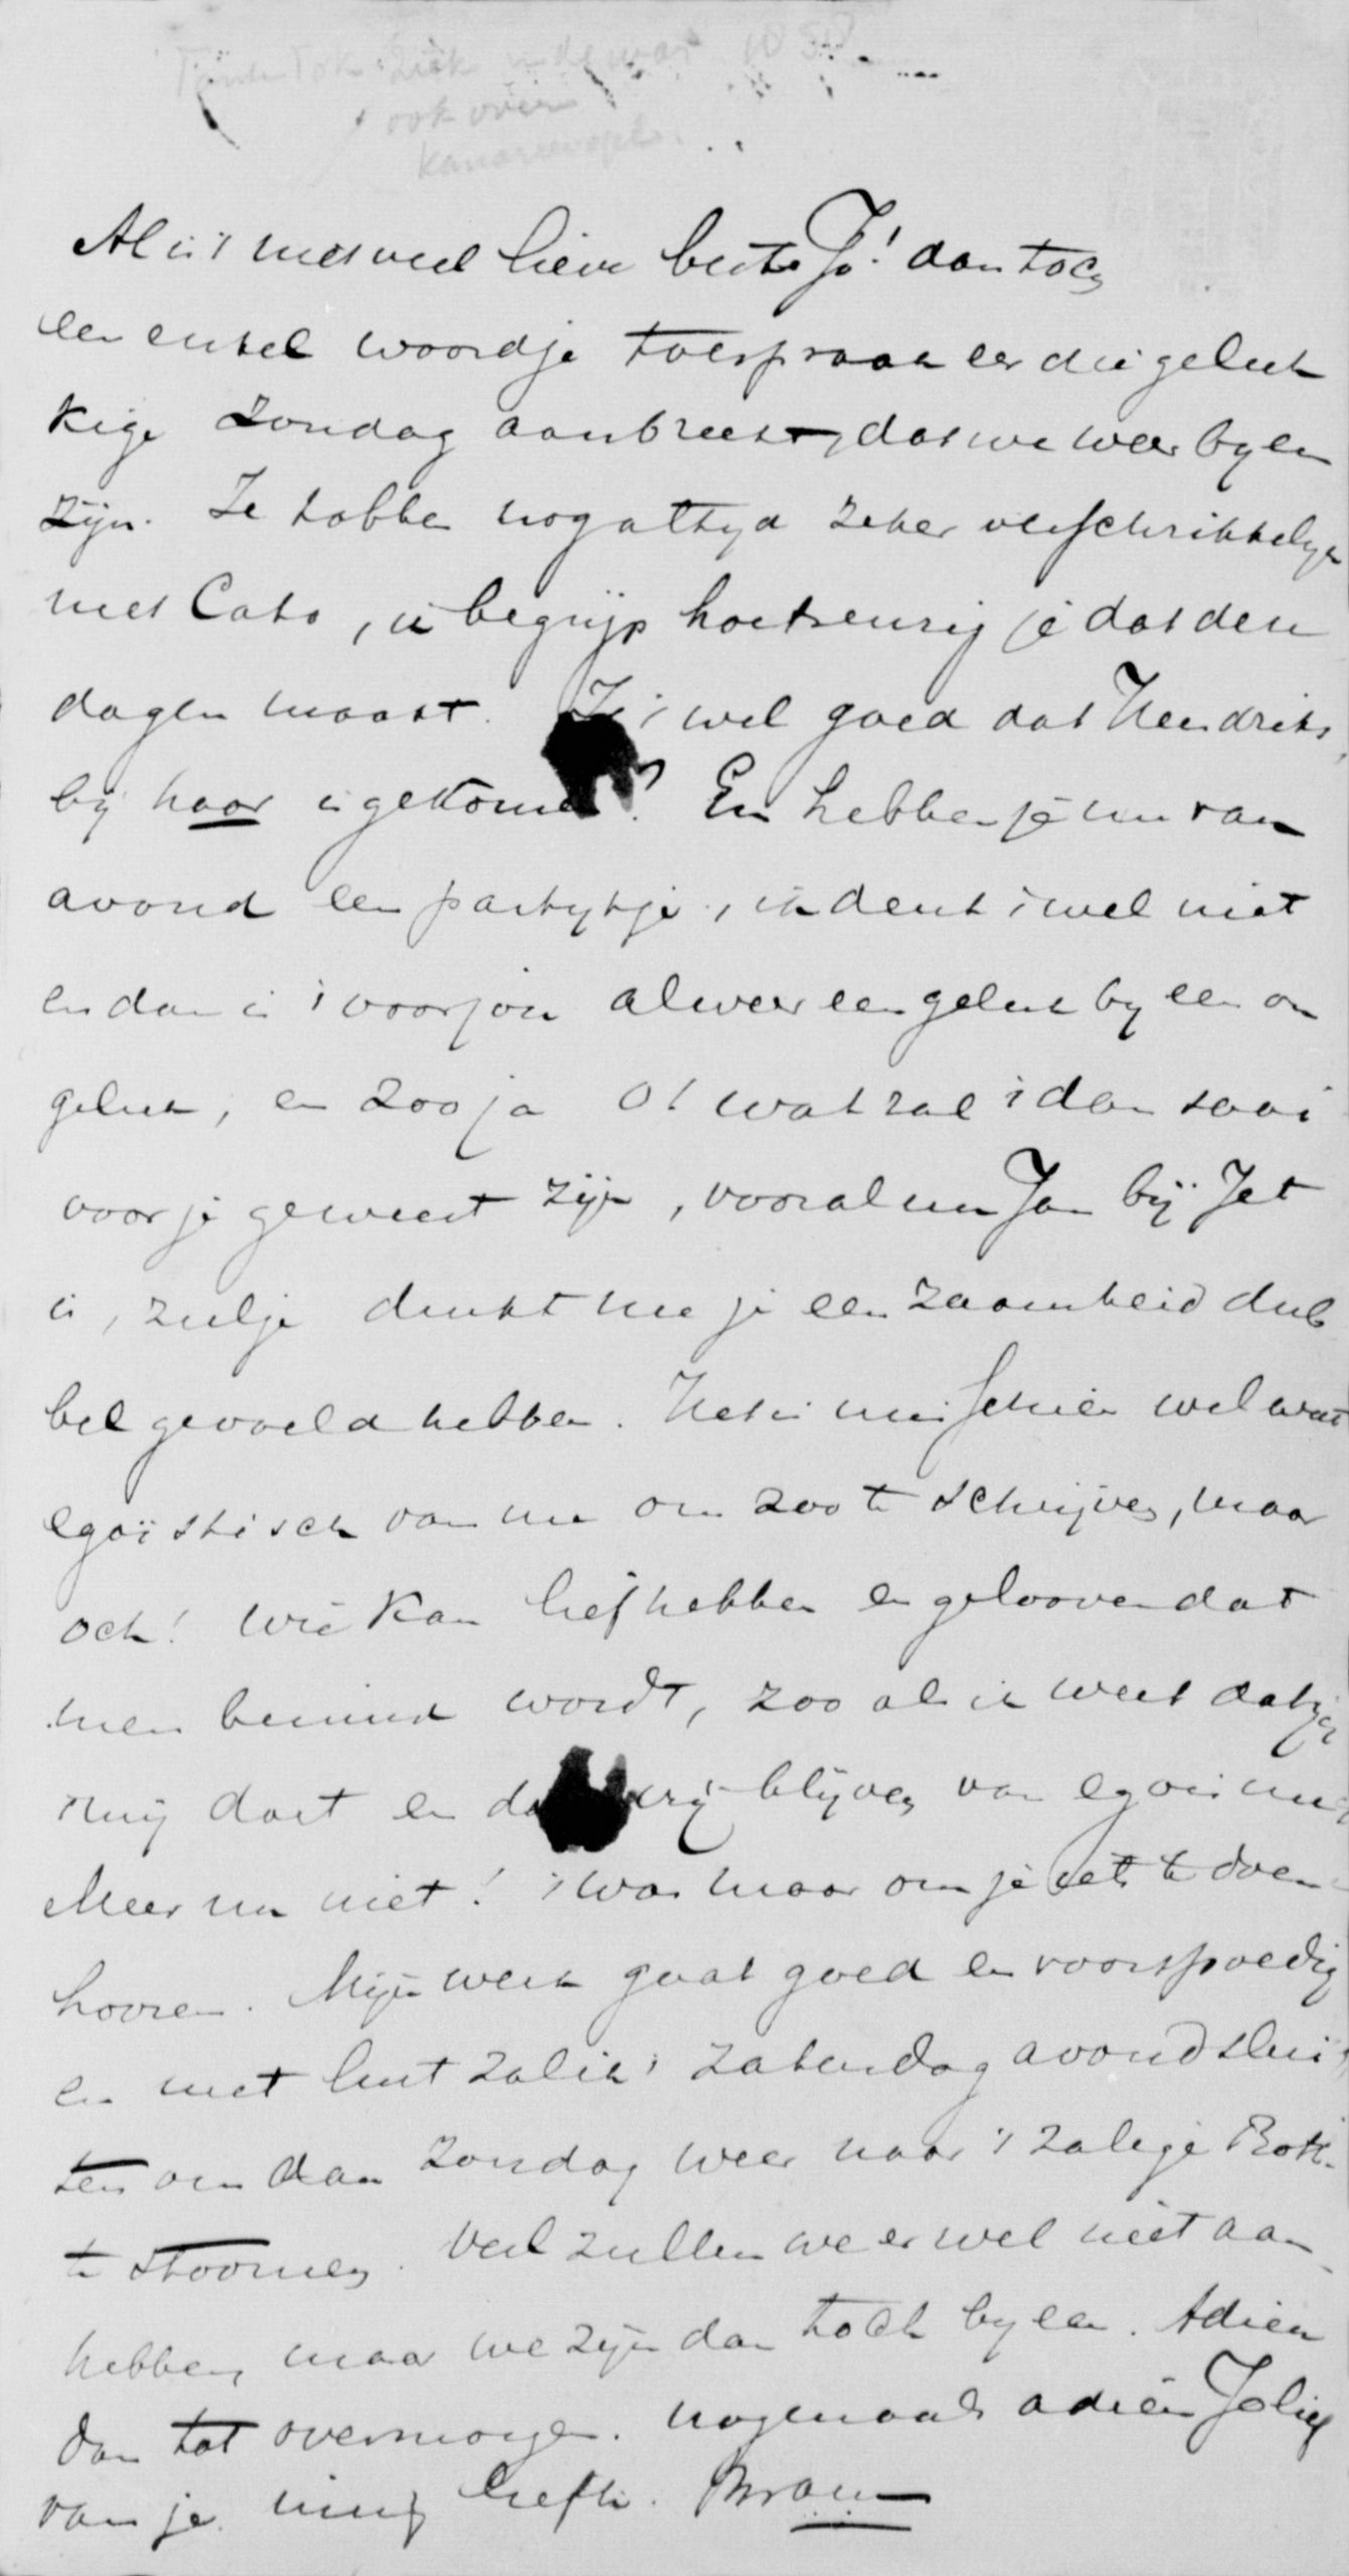 Tante Tok ziek
ook over
kanarievogels.
Al is 't niet veel lieve beste Jo! dan toch
een enkel woordje toespraak eer die geluk
kige Zondag aanbreekt, dat we weer byeen
zijn. Ze tobben nog altyd zeker verschrikkelyk
met Cato, ik begrijp hoe treurig je dat deze
dagen maakt. Is 't wel goed dat Hendriks
bij haar is gekomen? En hebben je nu van
avond een partytje, ik denk 't wel niet
en dan is 't voor jou alweer een geluk by een on
geluk, en zoo ja O! wat zal 't dan saai
voor je geweest zijn, vooral nu Jan bij Jet
is, zul je dunkt me je eenzaamheid dub
bel gevoeld hebben. Het is misschien wel wat
egoïstisch van me om zoo te schrijven, maar
och! wie kan liefhebben en gelooven dat
men bemind wordt, zooals ik weet dat jy
mij doet en dan vrij blijven van egoisme
Meer nu niet! 't was maar om je iets te doen
hooren. Mijn werk gaat goed en voorspoedig
en met lust zal ik 't Zaterdag avond slui
ten om dan Zondag weer naar 't zalige Rott.
te stoomen. Veel zullen we er wel niet aan
hebben, maar we zijn dan toch byeen. Adieu
dan tot overmorgen. nogmaals adieu Jolief
van je innig liefh. Bram